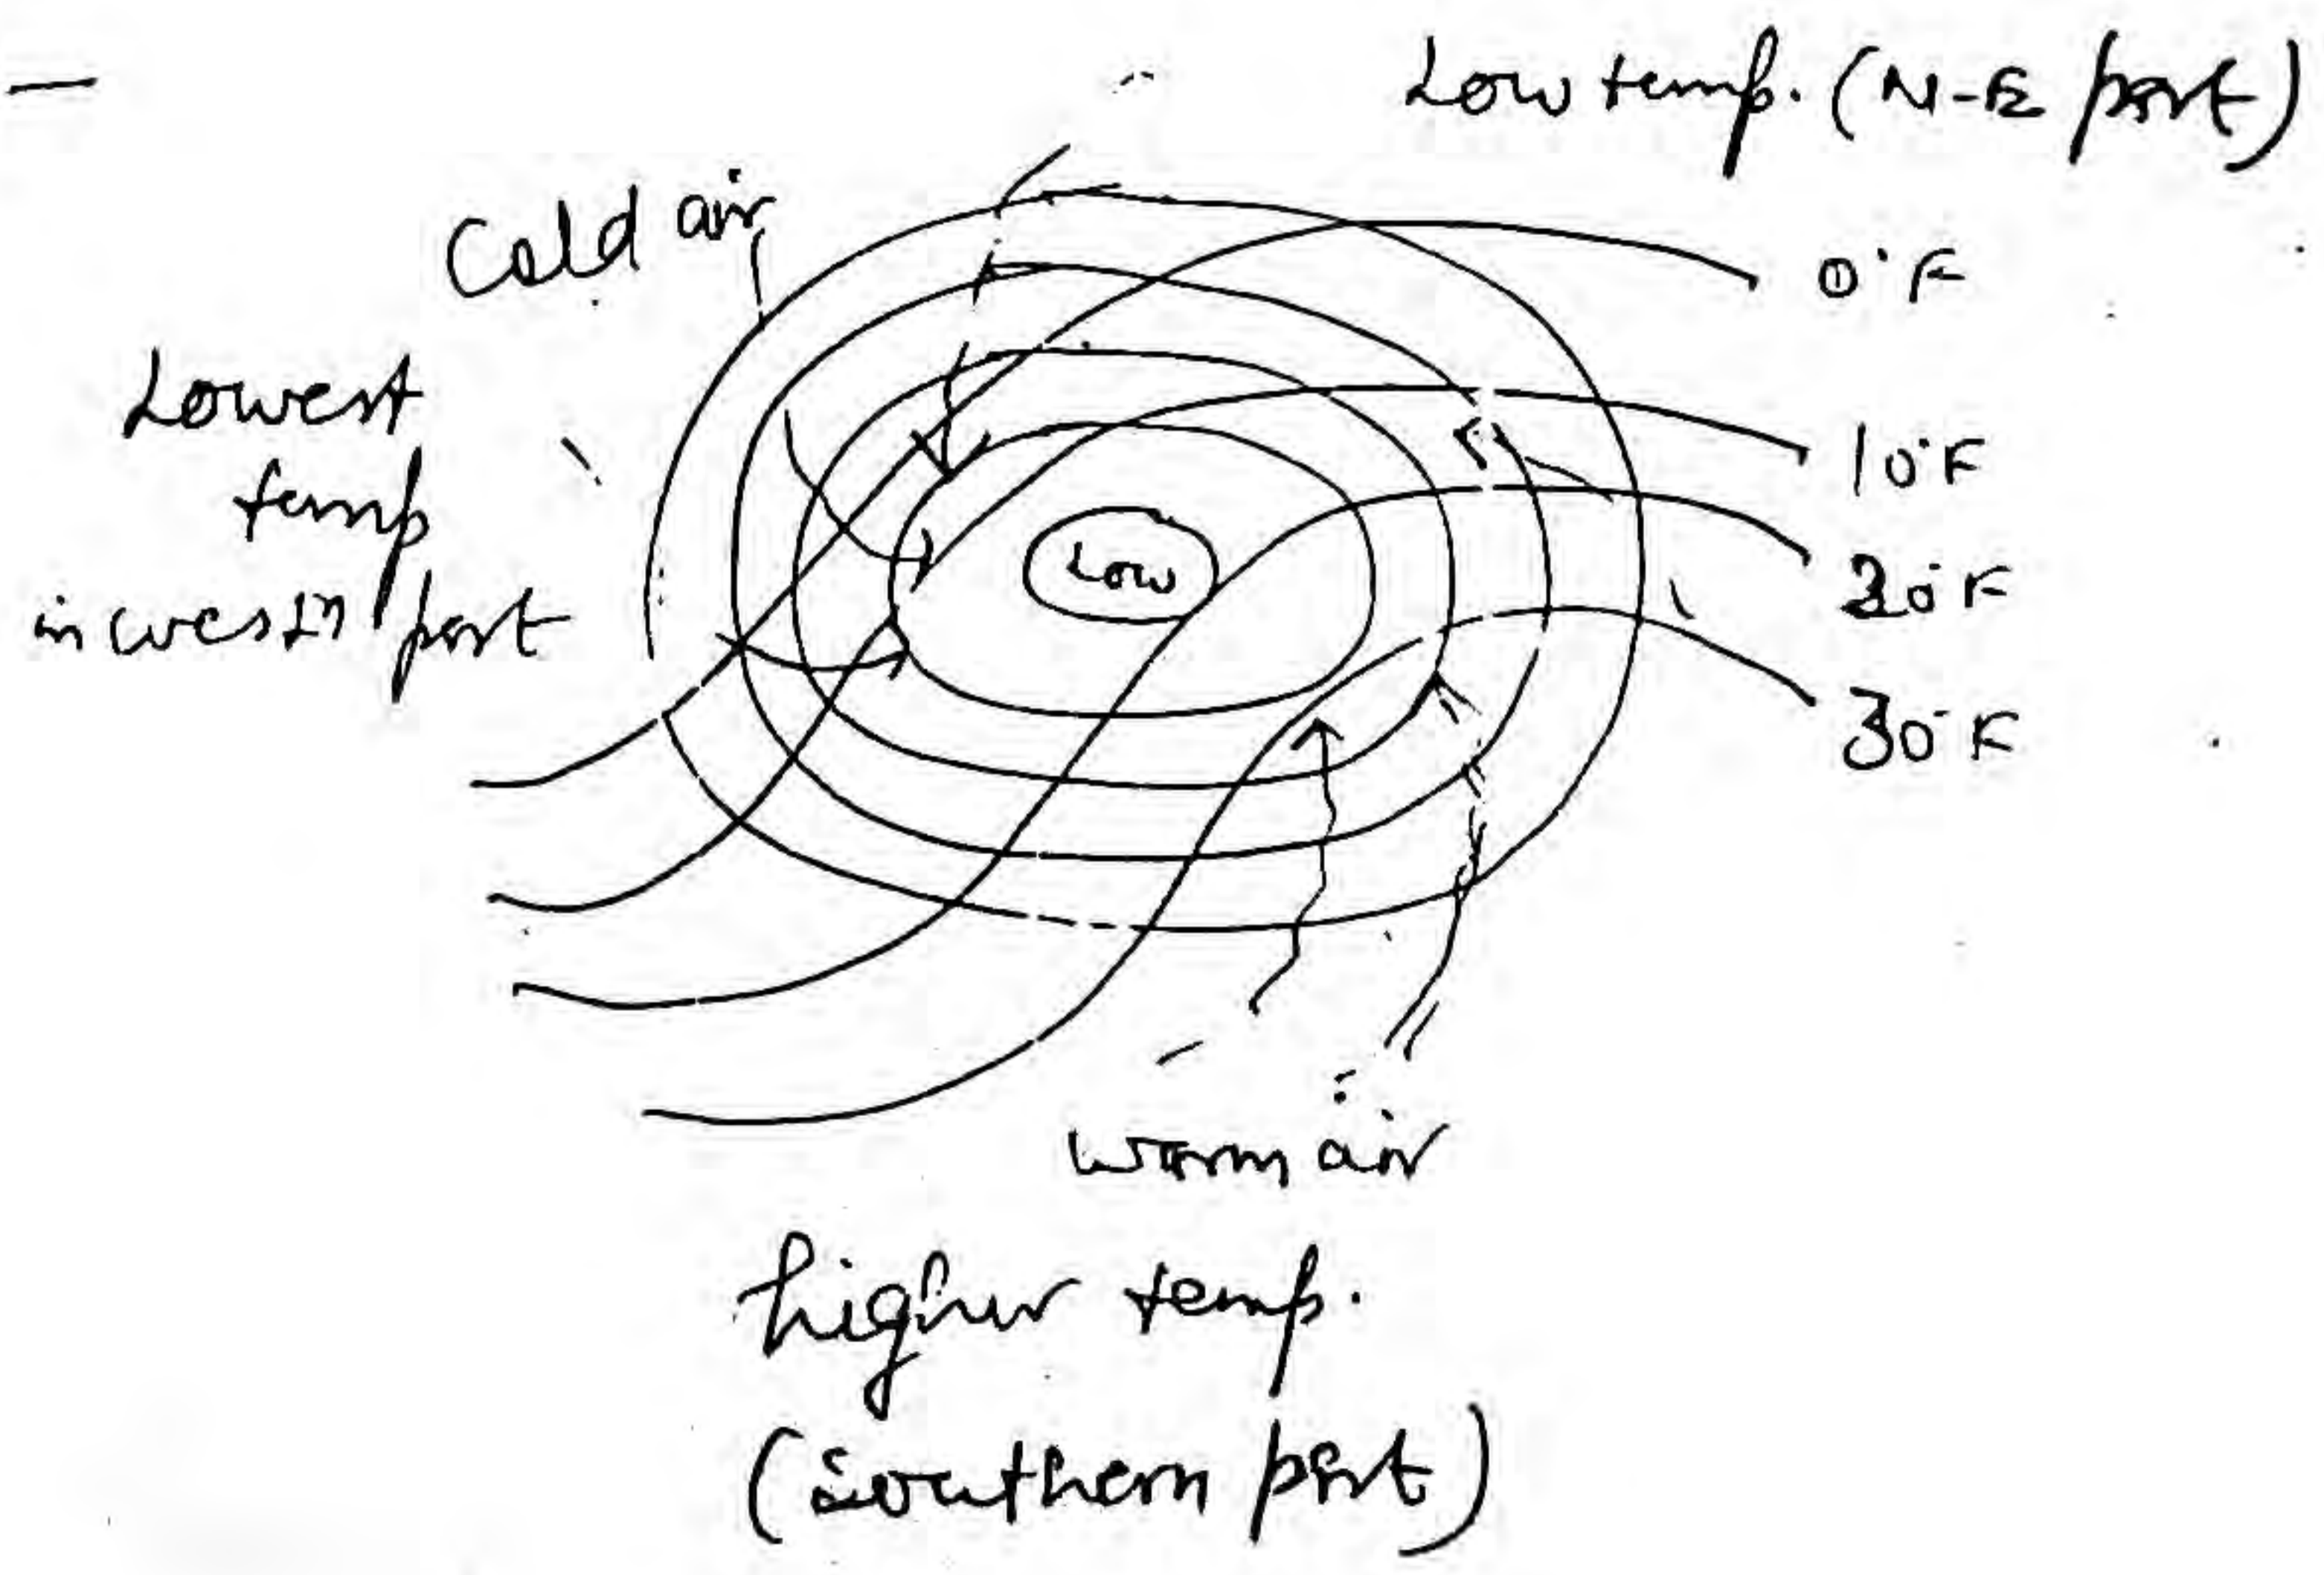 Low temp. (N-E part)
Cold air
0°F
Lowest
temp
in westn part
10°F
Low
20°F
30°F
warm air
higher temp.
(Southern part)